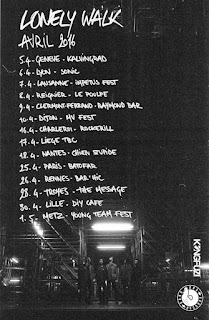 LONELY WALK
AVRIL 2016
5.4 - GENEVE - KALVINGRAD
6.4 - LYON - SONIC
7.4 - LAUSANNE - IMPETUS FEST
8.4 - REIGNIER - LE POULPE
9.4 - CLERMONT-FERRAND - RAYMOND BAR
10.4 - DIJON - MV FEST
16.4 - CHARLEROI - ROCKERILL
17.4 - LIEGE TBC
18.4 - NANTES - CHIEN STUPIDE
25.4 - PARIS - BATOFAR
26.4 - RENNES - BAR HIC
28.4 - TROYES - THE MESSAGE
30.4 - LILLE - DIY CAFE
1.5 - METZ - YOUNG TEAM FEST
KONGFUZI